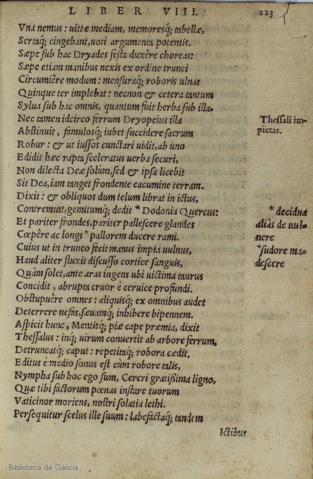 LIBER VIII. 223
Vna nemus: uittæ mediam, memoresq; tabellæ,
Sertaq; cingebant, uoti argumenta potentis.
Sæpe sub hac Dryades festa duxêre choreas:
Sæpe etiam manibus nexis ex ordine trunci
Circumiêre modum: mensuraq; roboris ulnas
Quinque ter implebat: necnon & cetera tantum
Sylua sub hac omnis, quantum fuit herba sub illa.
Nec tamen idcirco ferrum Dryopeius illa
Thessali im-
Abstinuit, famulosq; iubet succidere sacrum
pietas.
Robur: & ut iussos cunctari uidit, ab uno
Edidit hæc rapta sceleratus uerba securi,
Non dilecta Deæ solùm, sed & ipsa licebit
Sit Dea, iam tanget frondente cacumine terram.
Dixit: & obliquos dum telum librat in ictus,
Contremuit, gemitumq; dedit * Dodonia Quercus:
* decidua
Et pariter frondes, pariter pallescere glandes
aliâs de uul-
Cœpêre ac longi * pallorem ducere rami.
nere
Cuius ut in trunco fecit manus impia uulnus,
*sudore ma-
Haud aliter fluxit discusso cortice sanguis,
descere
Quàm solet, ante aras ingens ubi uictima taurus
Concidit, abrupta cruor è ceruice profundi.
Obstupuêre omnes: aliquisq; ex omnibus audet
Deterrere nefas, sæuamq; inhibere bipennem.
Aspicit hunc, Mentisq; piæ cape præmia, dixit
Thessalus: inq; uirum conuertit ab arbore ferrum,
Detruncatq; caput: repetitaq; robora cædit,
Editus è medio sonus est cùm robore talis,
Nympha sub hoc ego sum, Cereri gratissima ligno,
Quæ tibi factorum pœnas instare tuorum
Vaticinor moriens, nostri solatia lethi.
Persequitur scelus ille suum: labefactaq; tandem
Ictibus
Biblioteca de Galicia